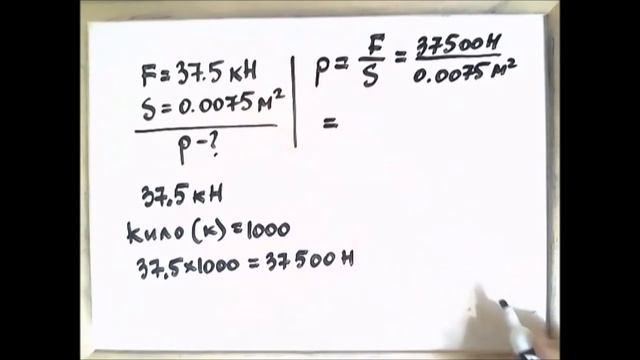 F = 37.5 кН
S = 0.0075 м²
p - ?
p = F/S = 37500 Н / 0.0075 м²
=
37.5 кН
кило (к) = 1000
37.5 × 1000 = 37 500 Н